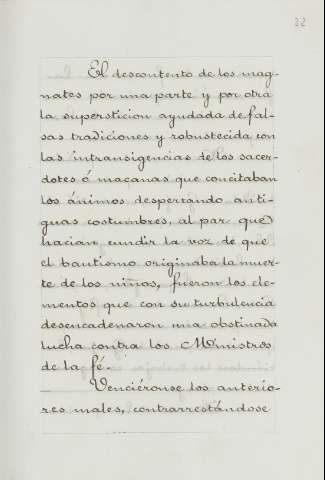 22
El descontento de los mag-
nates por una parte y por otra
la supersticion ayudada de fal-
sas tradiciones y robustecida con
las intransigencias de los sacer-
dotes ó macanas que concitaban
los ánimos despertando anti-
guas costumbres, al par que
hacian cundir la voz de que
el bautismo originaba la muer-
te de los niños, fueron los ele-
mentos que con su turbulencia
desencadenaron una obstinada
lucha contra los Ministros
de la fé.
Venciéronse los anterio-
res males, contrarrestándose